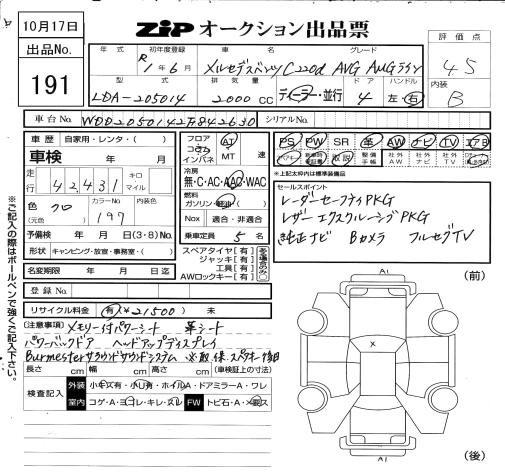 10月17日
出品No.
191
ZIP オークション出品票
評価点
4.5
内装
B
年式 初年度登録 車名 グレード
R1年6月 メルセデスベンツC220d AVG AMGライン
型式 排気量 ドア ハンドル
LDA-205014 2000cc ディーラー・並行 4 左・右
車台No. WDD2050142F842630 シリアルNo.
車歴 自家用・レンタ・( )
車検 年 月
走行 42431 キロ マイル
色 クロ カラーNo. 197 内装色
(元色
予備検 年 月 日(3・8)No.
形状 キャンピング・放宣・事務室・( )
名変期限 年 月 日迄
登録No.
フロア コラム インパネ AT MT 速
冷房 無・C・AC・AAC・WAC
燃料 ガソリン・軽油・( )
Nox 適合・非適合
乗車定員 5名
スペアタイヤ[有]
ジャッキ[有]
工具[有]
AWロックキー[有]
PS PW SR 革 AW ナビ TV エアB
取説 整備手帳 社外AW 社外ナビ 社外TV
※上記太枠内は標準装備品
セールスポイント
レーダーセーフティPKG
レザーエクスクルーシブPKG
純正ナビ Bカメラ フルセグTV
リサイクル料金 有(¥21500) 未
(注意事項) メモリー付パワーシート 革シート
パワーバックドア ヘッドアップディスプレイ
Burmesterサラウンドサウンドシステム ※取・保・スペアキー後日
長さ cm 幅 cm 高さ cm (車検証上の寸法)
検査記入 外装 小キズ有・小凹有・ホイルA・ドアミラーA・ワレ
室内 コゲ・A・ヨゴレ・キレ・スレ FW トビ石・A・
※ご記入の際はボールペンで強くご記入下さい。
A1
(前)
×
A1
(後)